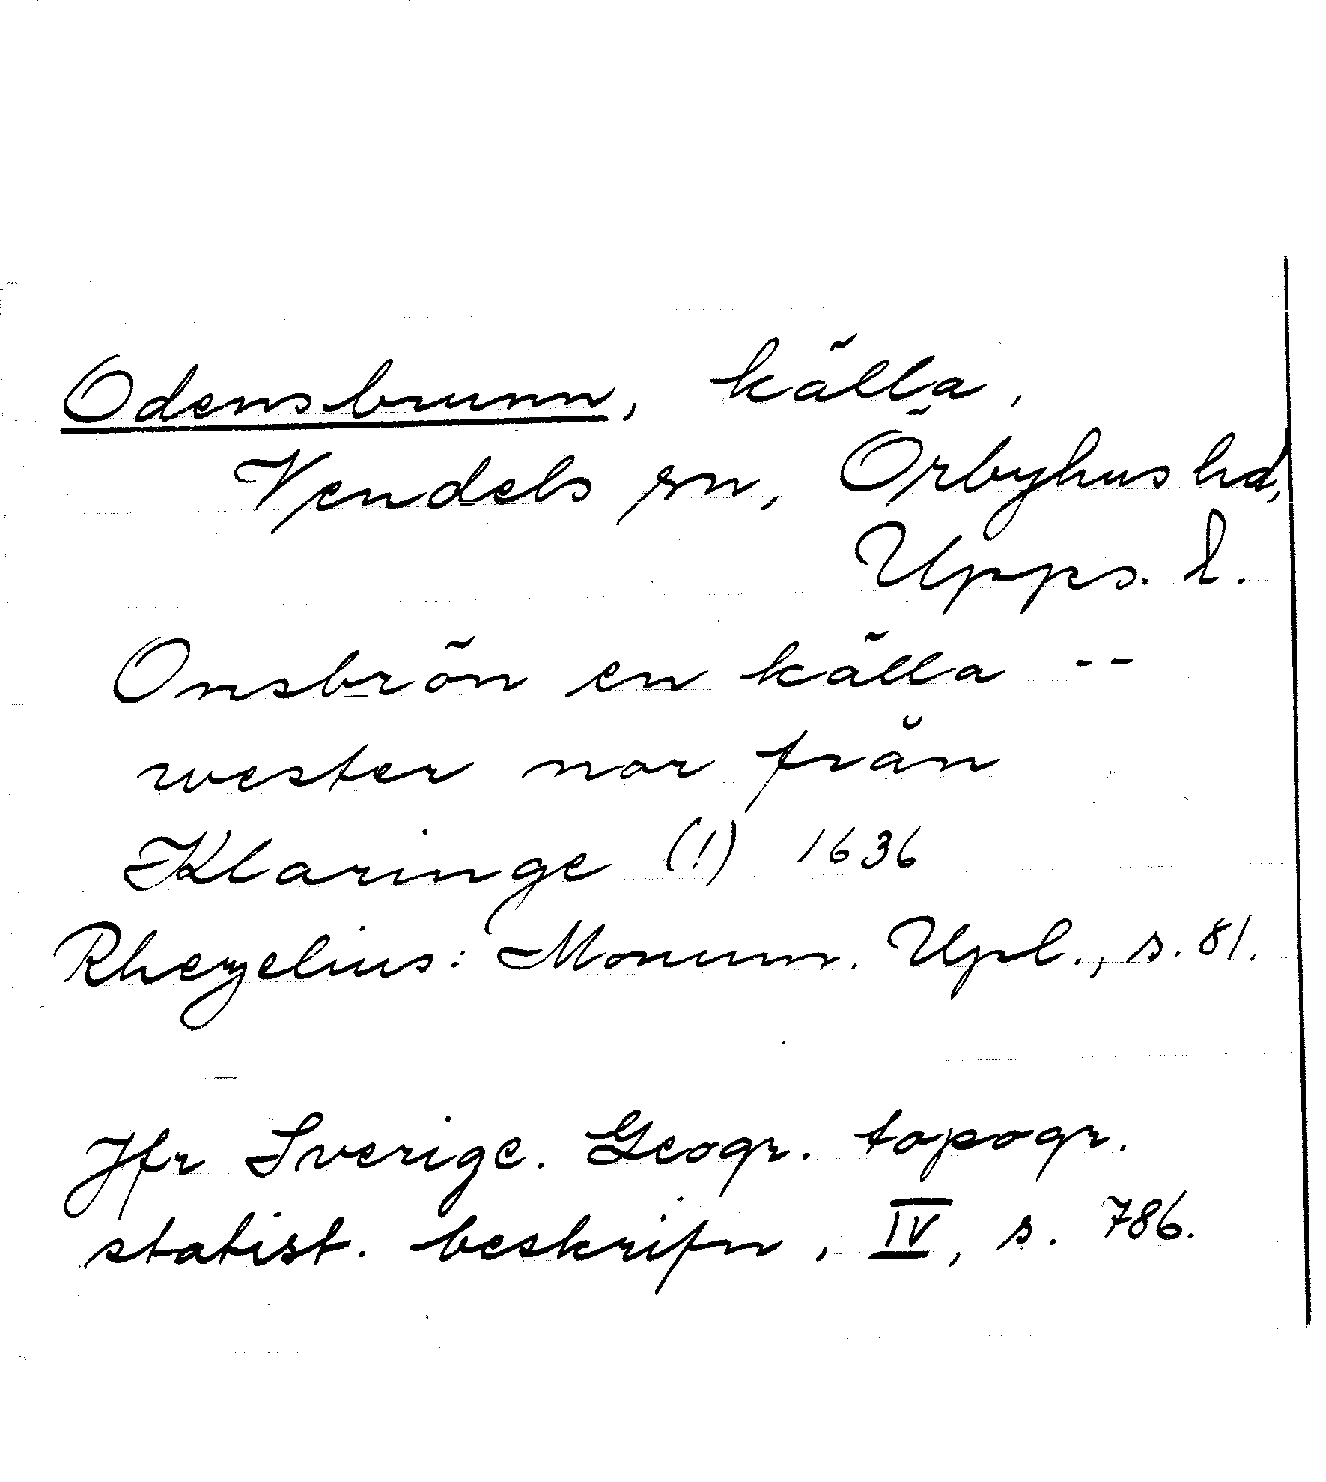 Odensbrunn, källa,
Vendels sn, Örbyhus hd,
Upps. l.
Onsbrön en källa --
wester nor från
Klaringe (!) 1636
Rhezelius: Monum. Upl., s. 81.
Jfr Sverige. Geogr. topogr.
statist. beskrifn, IV, s. 786.